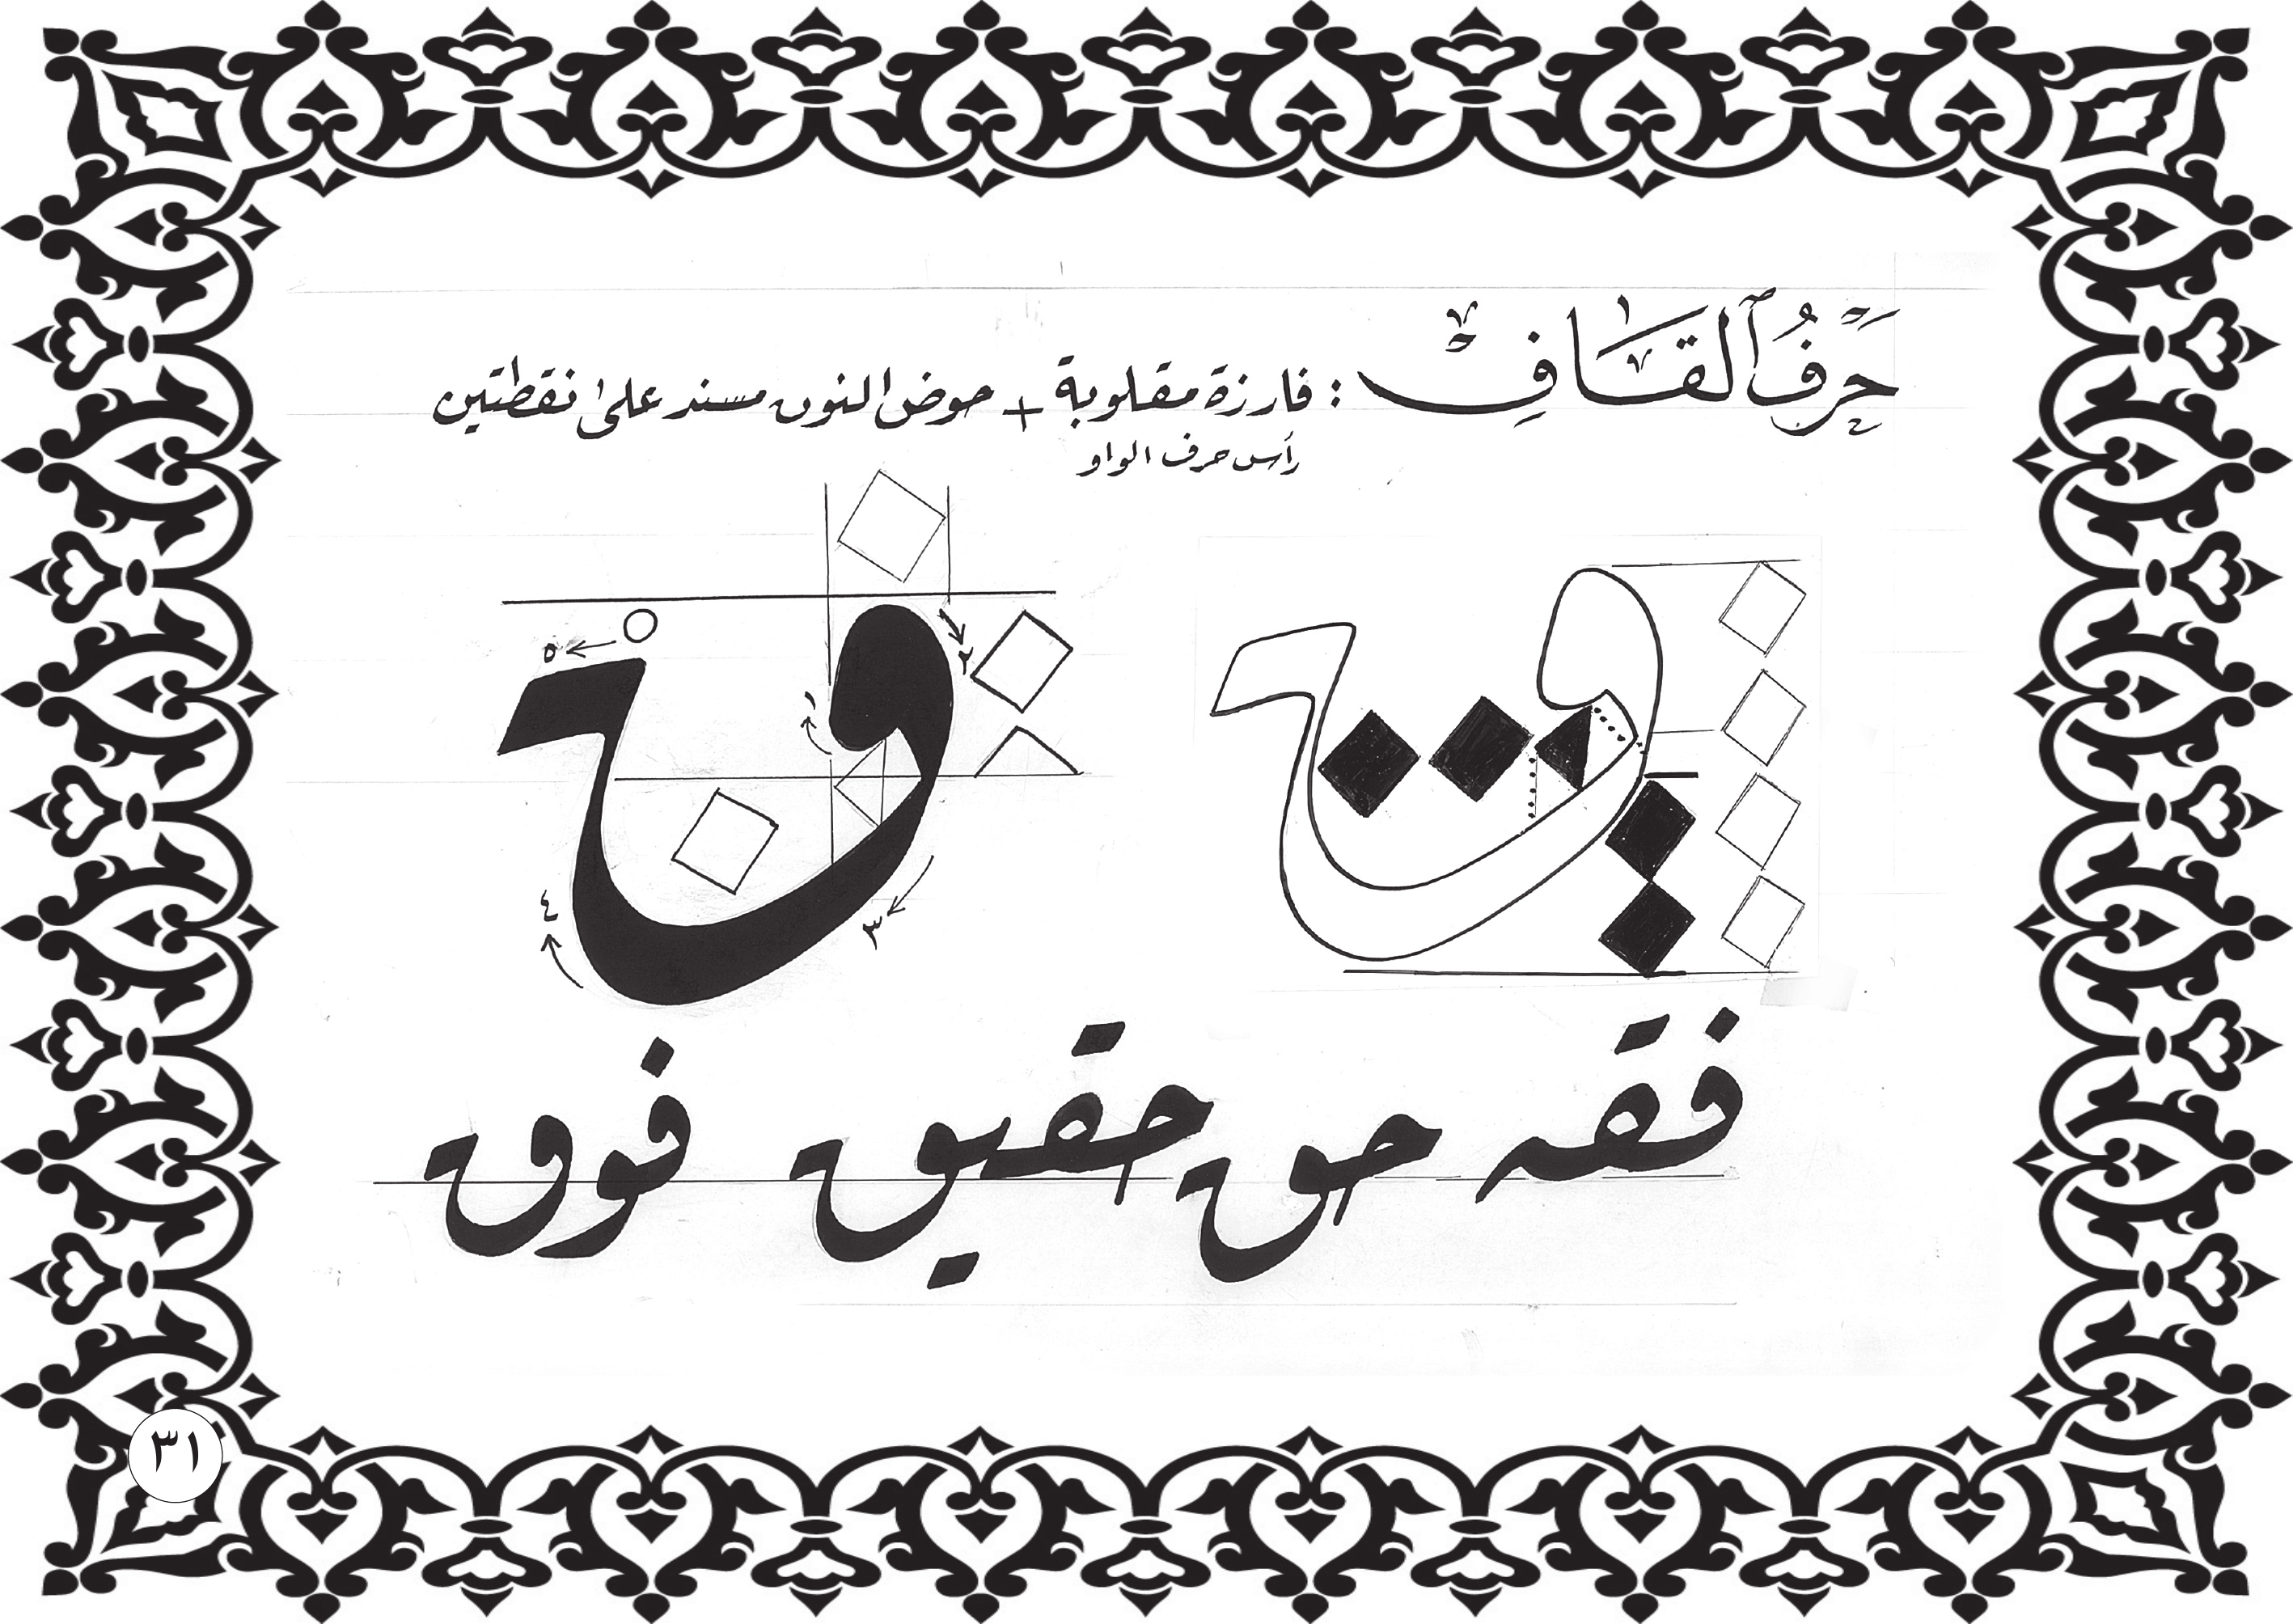 حَرفُ ٱلقَافِ : فارزة مقلوبة + حوض النون مسند على نقطتين
رأس حرف الواو
١ ٢ ٣ ٤ ٥
فقه حق حقيق فوق
٣١